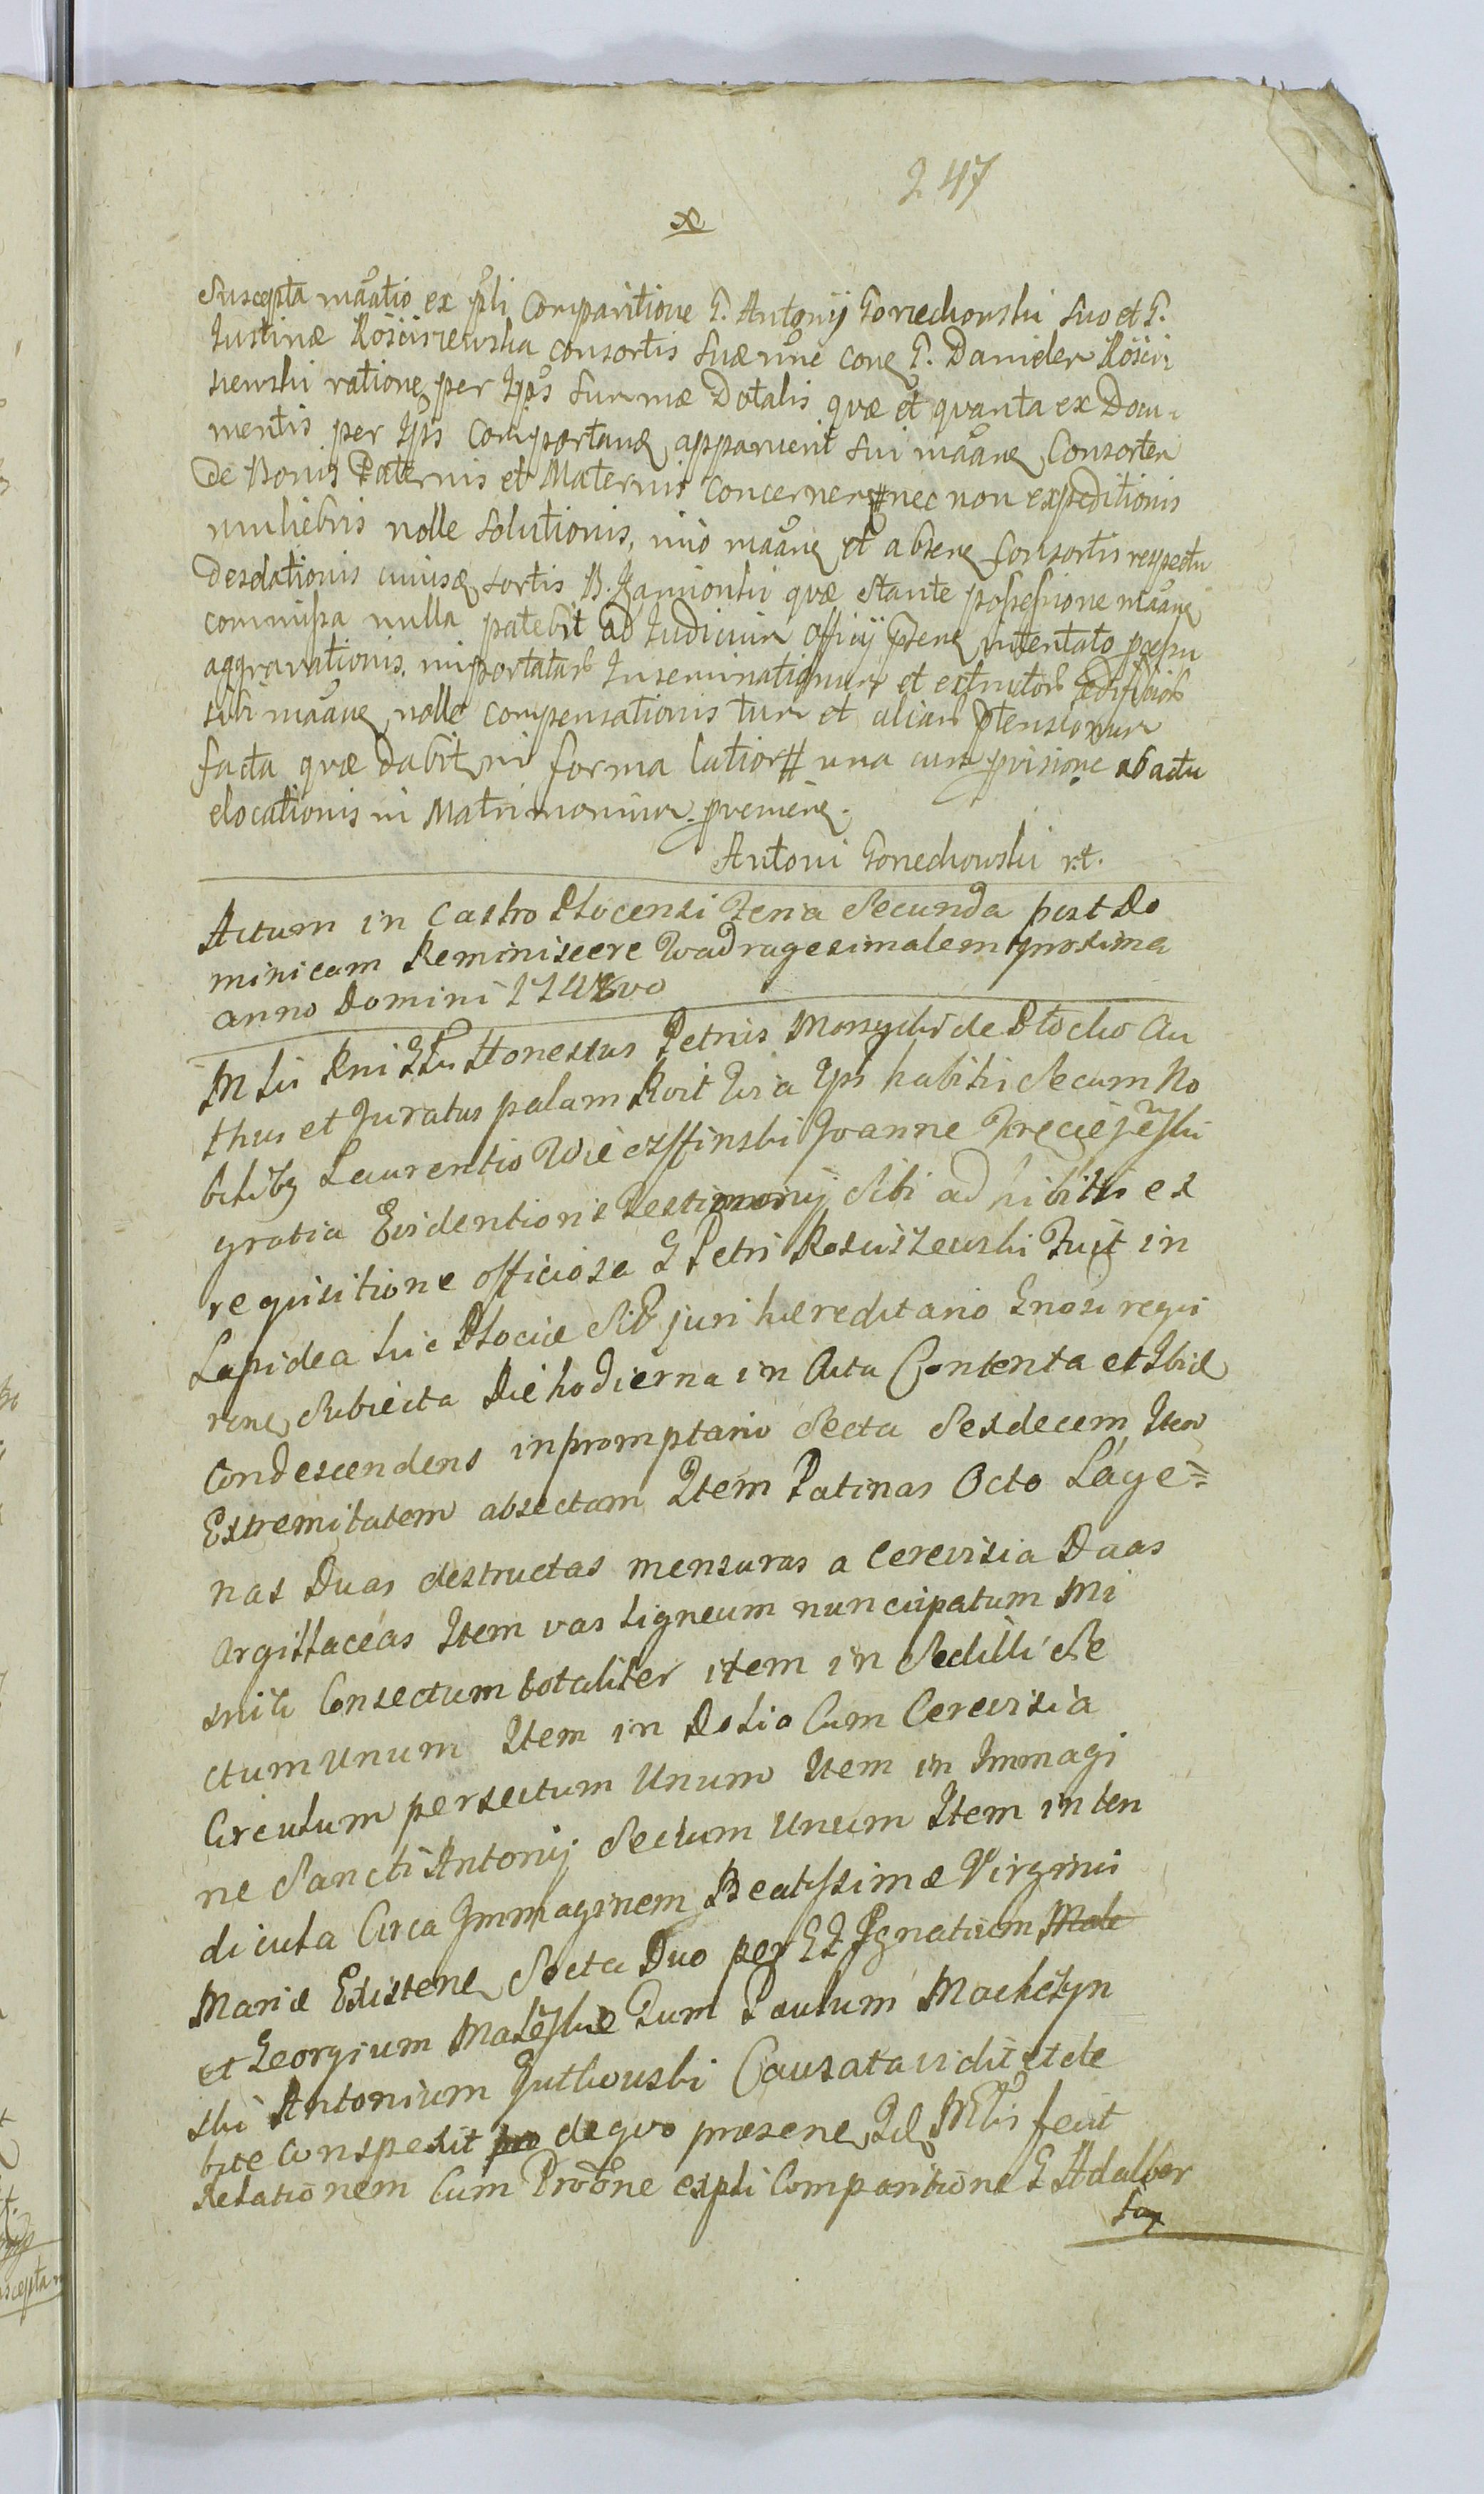 247
x
Suscepta maãtio ex pli Comparitione G. Antonij Gorzechowski suo et G.
Justinæ Rościszewska consortis suæ nne cone G. Danielem Rości
szewski ratione per Ips Summæ Dotalis quæ et quanta ex Docu-
mentis per Ips Comportane apparuerit sui maãne Consortem
de Bonis Paternis et Maternis concernen nec non expeditionis
muliebris nolle solutionis, imo maãne et absene Consortis respectu
desolationis cuiusq sortis B. Kamionki quæ stante possessione maãne
commissa nulla patebit ad Judicium Officij præne intentato præsu
aggravationis, importatar Inseminationum et extructor ædificior
sibi maãne nolle compensationis tum et aliar ptensionum
facta quæ dabit in forma latiori una cum pvisione ab actu
elocationis in Matrimonium pveniene.
Antoni Gorzechowski rt.
Actum in Castro Plocensi Feria Secunda post Do
minicam Reminiscere Quadragesimalem proxima
anno Domini 1748vo
M lis Rni Hu Honestus Petrus Morzycki de Plocko Au
thus et Juratus palam Roit Quia Ips habitis Secum No
bilibg Laurentio Wieczffinski Joanne Trzcięieski
gratia Evidentioris Testimonij Sibi ad hibitis ex
requisitione officiosa G Petri Rosciszewski Fuit in
Lapidea hic Plociæ Sib juri hæreditario Gnosi requi
rene Subiecta Die hodierna in Actu Contenta et Ibid
condescendens inpromptario Secta Sexdecem Item
Extremitatem absectam Item Patinas Octo Lage=
nas Duas destructas mensuras a Cerevisia Duas
Argillaceas Item vas ligneum nuncupatum Mi
snik Consectum totaliter item in Sedilli Se
ctum unum Item in Dolio Cum Cerevisia
Circulum persectum Unum Item in Immagi
ne Sancti Antonij Sectum Unum Item in ten
dicula Circa Immaginem Beatissimæ Virginis
Mariæ Existene Secta Duo per GG Ignatium Male
et Georgium Maleskie Tum Paulum Mochczyn
ski Antonium Gutkowski Causata vidit et de
bite Conspexit pro de quo præsene Id Mlis fecit
Relationem Cum Protõne expli Comparitione G Adalber